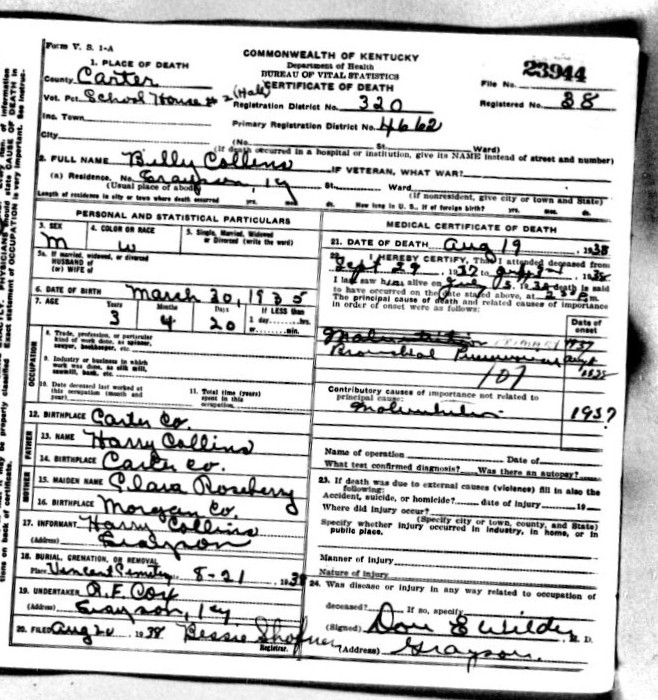 Form V. S. 1-A
COMMONWEALTH OF KENTUCKY
Department of Health
BUREAU OF VITAL STATISTICS
CERTIFICATE OF DEATH
23944
File No.
Registered No. 38
1. PLACE OF DEATH
County Carter
Vot. Pct. School House # 2 (Hall)
Registration District No. 320
Ins. Town
Primary Registration District No. 4662
City
(No. St. Ward)
(If death occurred in a hospital or institution, give its NAME instead of street and number)
2. FULL NAME Billy Collins IF VETERAN, WHAT WAR?
(a) Residence. No. Grayson, Ky St. Ward
(Usual place of abode) (If nonresident, give city or town and State)
Length of residence in city or town where death occurred yrs. mos. ds. How long in U. S., if of foreign birth? yrs. mos. ds.
PERSONAL AND STATISTICAL PARTICULARS
3. SEX M
4. COLOR OR RACE W
5. Single, Married, Widowed or Divorced (write the word)
5a. If married, widowed, or divorced
HUSBAND of
(or) WIFE of
6. DATE OF BIRTH March 30, 1935
7. AGE Years 3 Months 4 Days 20 If LESS than
1 day, hrs.
or min.
OCCUPATION
8. Trade, profession, or particular
kind of work done, as spinner,
sawyer, bookkeeper, etc.
9. Industry or business in which
work was done, as silk mill,
sawmill, bank, etc.
10. Date deceased last worked at
this occupation (month and
year)
11. Total time (years)
spent in this
occupation
12. BIRTHPLACE Carter Co.
FATHER
13. NAME Harry Collins
14. BIRTHPLACE Carter Co.
MOTHER
15. MAIDEN NAME Clara Roseberry
16. BIRTHPLACE Morgan Co.
17. INFORMANT Harry Collins
(Address) Grayson
18. BURIAL, CREMATION, OR REMOVAL
Place Vincent Cemetery 8-21 1938
19. UNDERTAKER R. E. Cox
(Address) Grayson, Ky.
20. FILED Aug 20 1938 Bessie Shofner
Registrar.
MEDICAL CERTIFICATE OF DEATH
21. DATE OF DEATH Aug 19 1938
22. I HEREBY CERTIFY, That I attended deceased from
Sept 29 1937 to 1938
I last saw him alive on July 5, 1938 death is said
to have occurred on the date stated above, at m.
The principal cause of death and related causes of importance
in order of onset were as follows:
Date of
onset
Malnutrition 1937
Bronchial Pneumonia Aug
1938
107
Contributory causes of importance not related to
principal cause:
Malnutrition 1937
Name of operation Date of
What test confirmed diagnosis? Was there an autopsy?
23. If death was due to external causes (violence) fill in also the
following:
Accident, suicide, or homicide? date of injury 19
Where did injury occur?
(Specify city or town, county, and State)
Specify whether injury occurred in industry, in home, or in
public place.
Manner of injury
Nature of injury
24. Was disease or injury in any way related to occupation of
deceased? If so, specify
(Signed) Don E Wilder M. D.
(Address) Grayson.